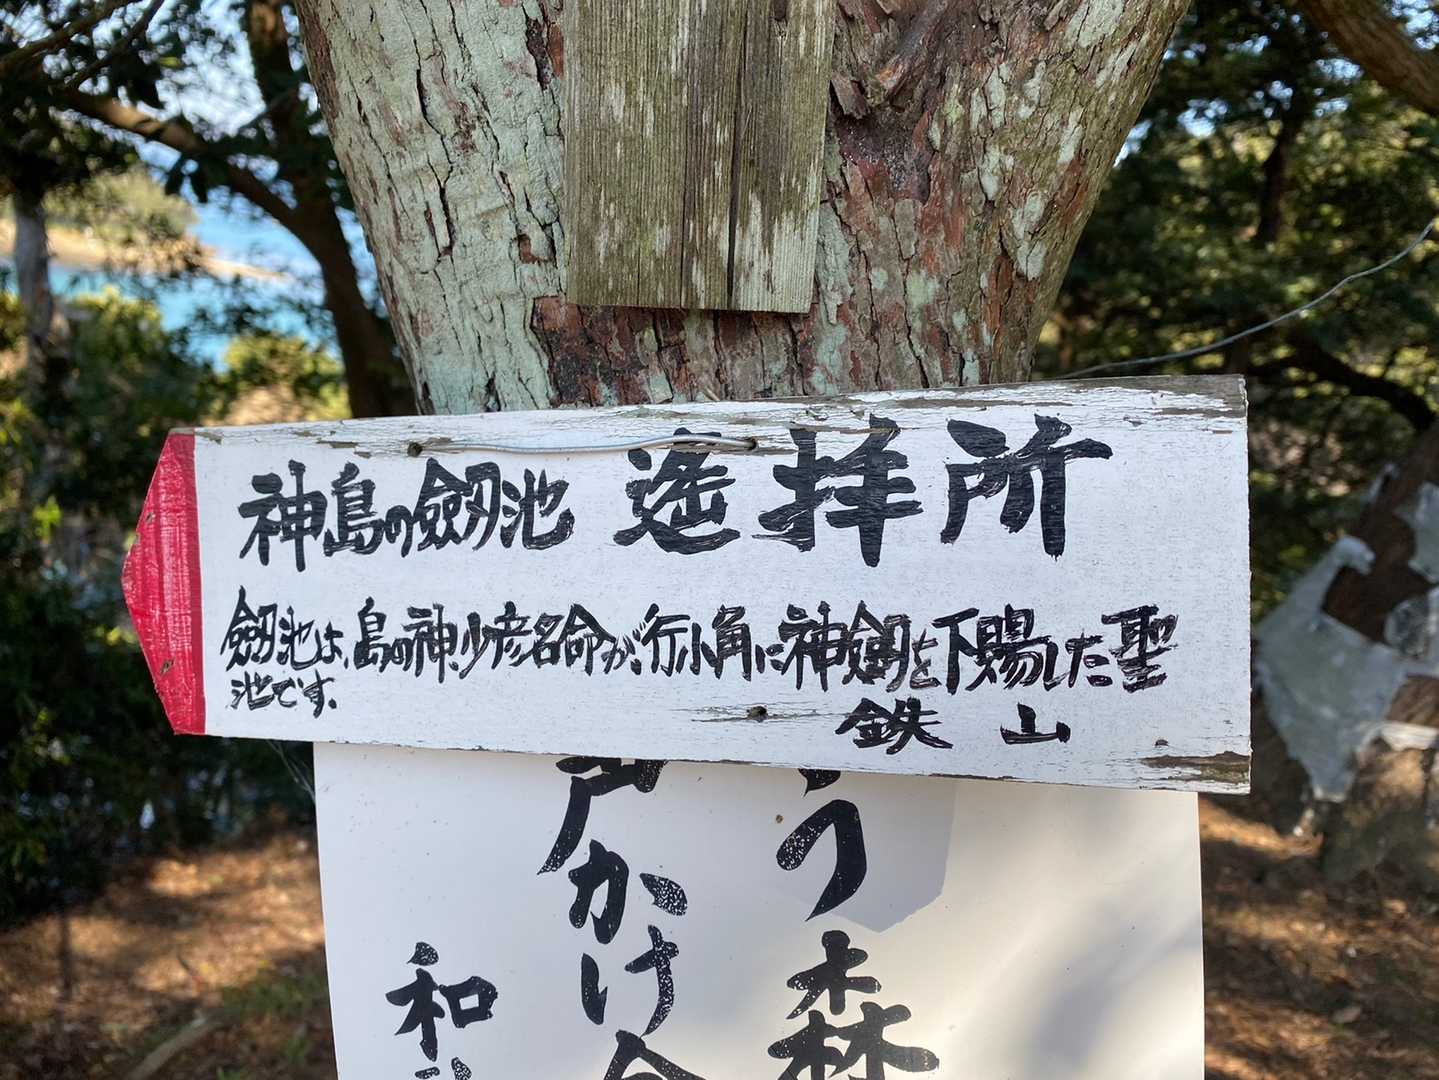 神島の劔池 遥拝所
劔池は、島の神、少彦名命が、行小角に神劔を下賜した聖
池です。
鉄 山
う森
声かけ合
和